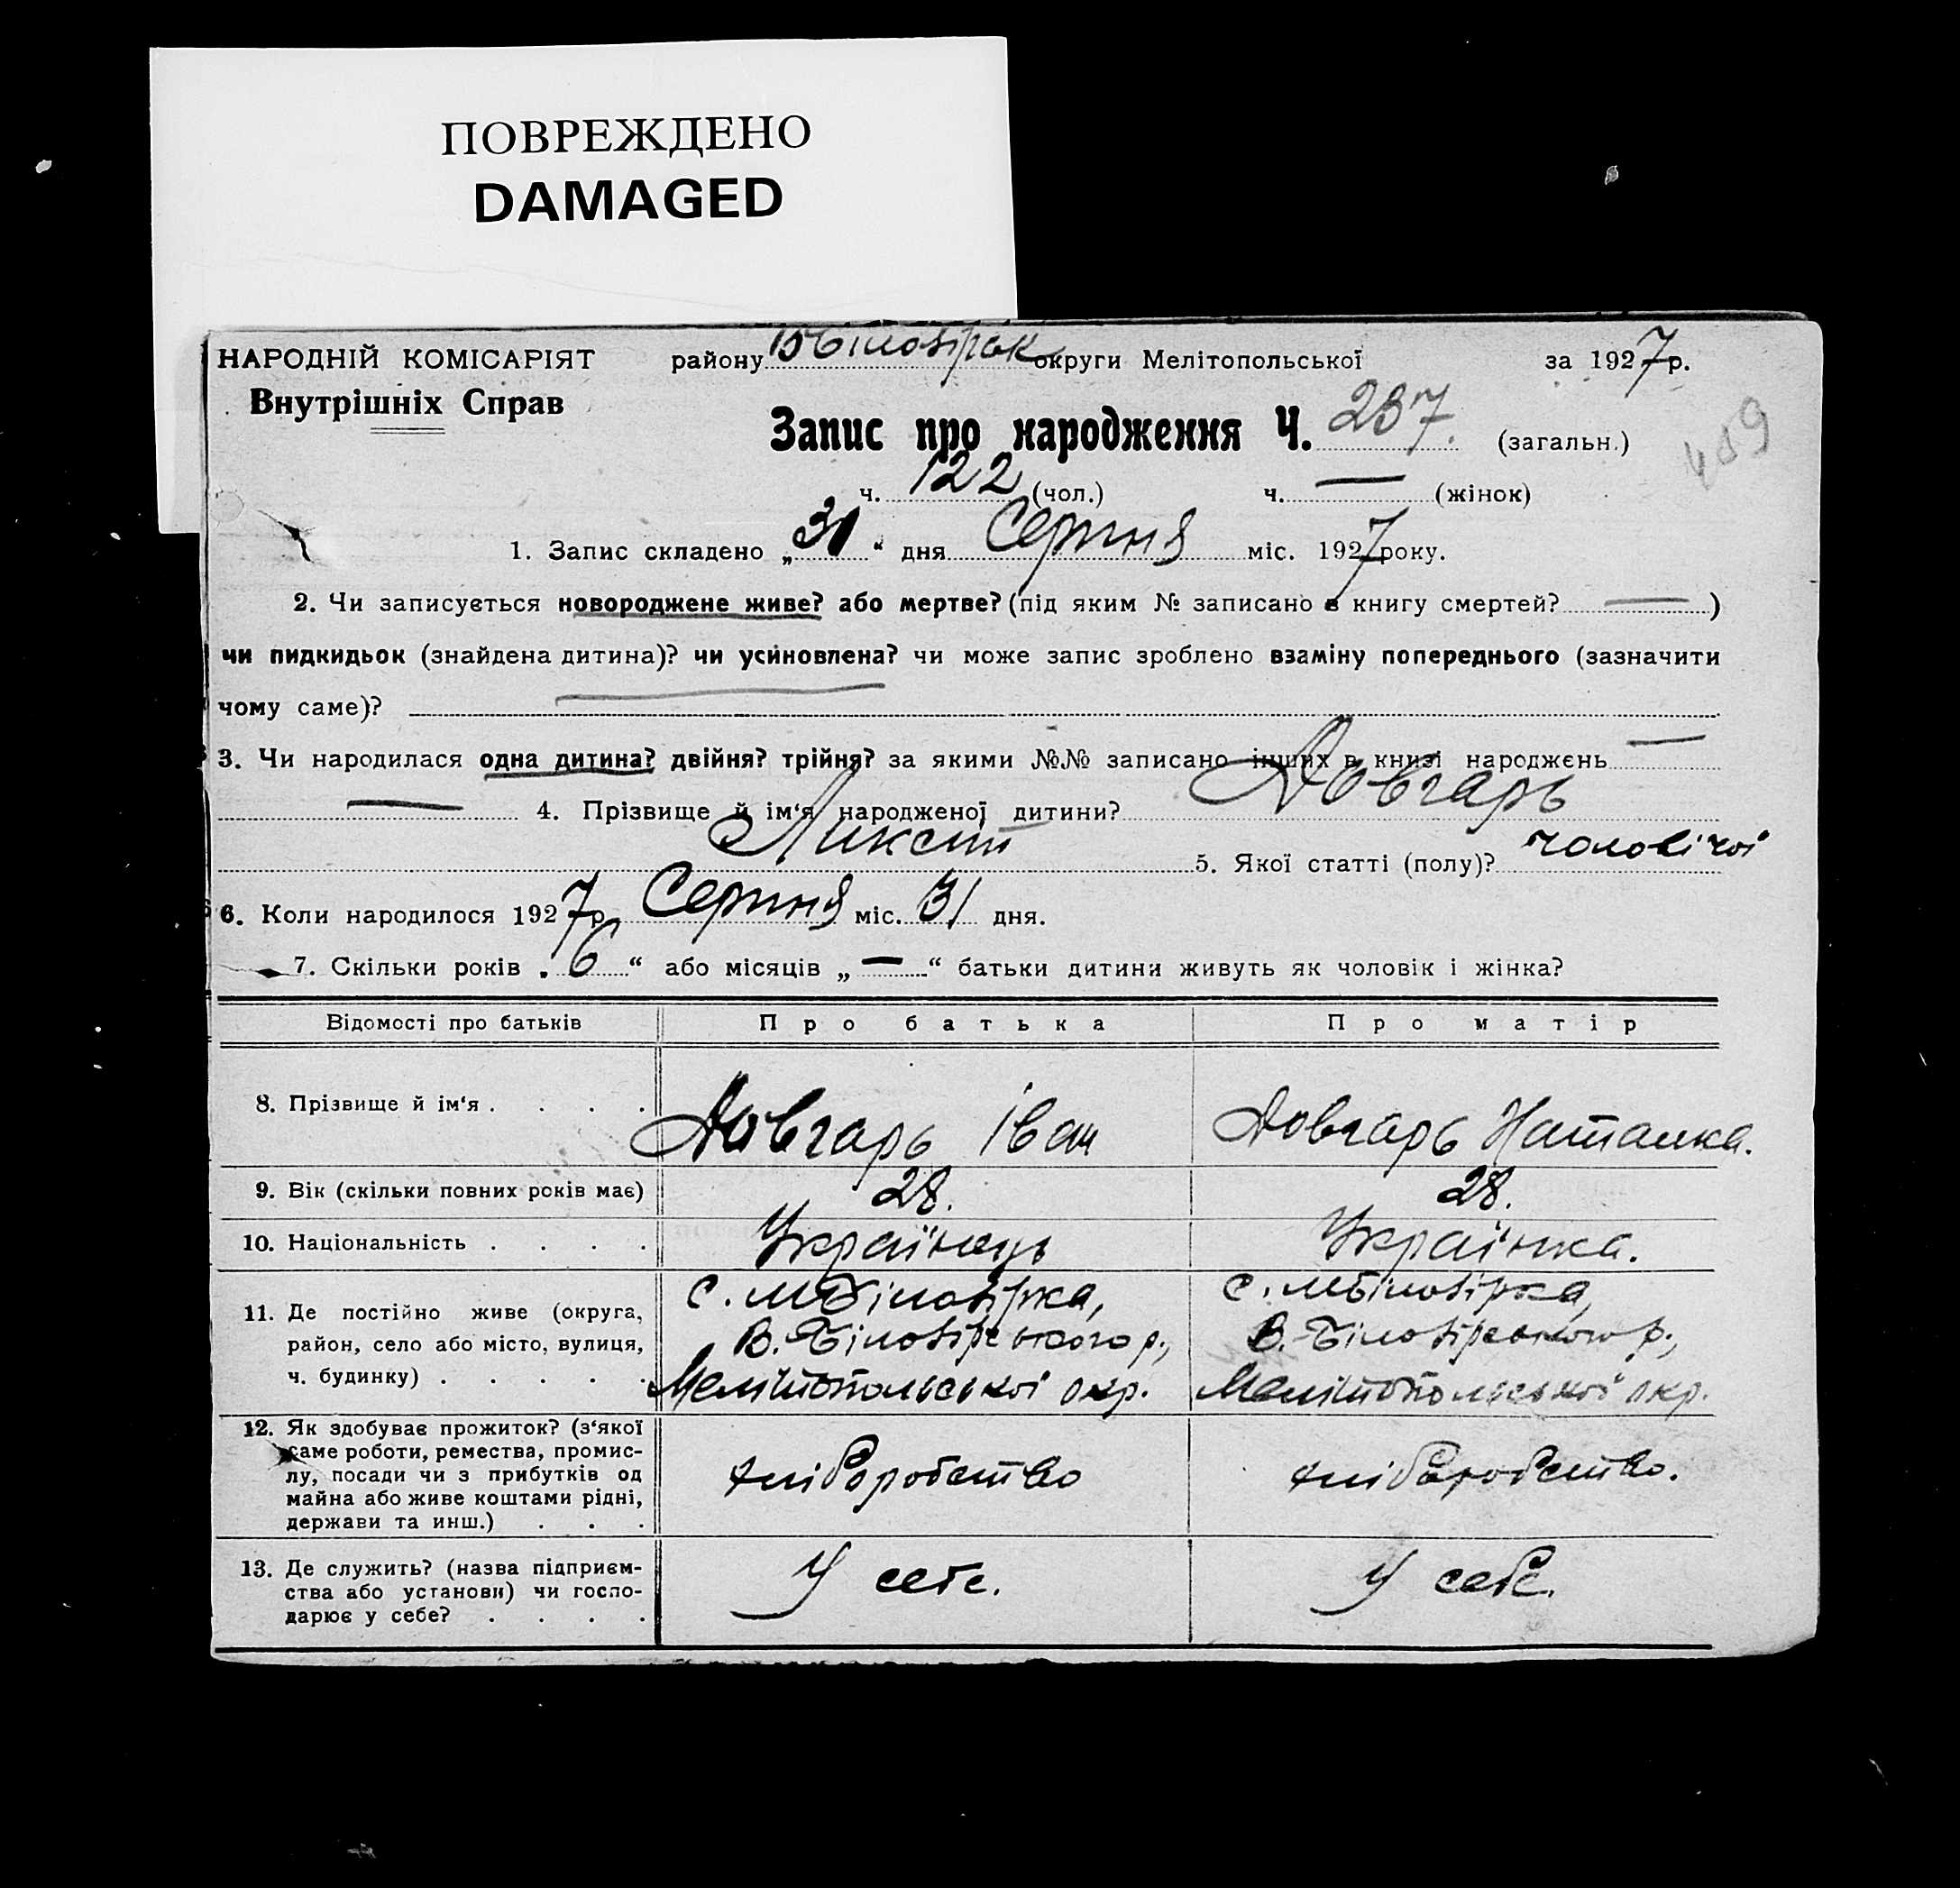 ПОВРЕЖДЕНО
DAMAGED
НАРОДНІЙ КОМІСАРІЯТ району ВБілозірськ округи Мелітопольської за 1927 р.
Внутрішніх Справ
Запис про народження Ч. 237. (загальн.)
ч. 122 (чол.) ч. — (жінок)
1. Запис складено „31“ дня Серпня міс. 1927 року.
2. Чи записується новороджене живе? або мертве? (під яким № записано в книгу смертей? — )
чи пидкидьок (знайдена дитина)? чи усиновлена? чи може запис зроблено взаміну попереднього (зазначити
чому саме)?
3. Чи народилася одна дитина? двійня? трійня? за якими №№ записано інших в книзі народжень —
— 4. Прізвище й ім‘я народженої дитини? Довгарь
5. Якої статті (полу)? чоловічої
6. Коли народилося 1927 р. Серпня міс. 31 дня.
7. Скільки років „6“ або місяців „—“ батьки дитини живуть як чоловік і жінка?
Відомості про батьків Про батька Про матір
8. Прізвище й ім‘я . . . . Довгарь Іван Довгарь Наталка.
9. Вік (скільки повних років має) 28. 28.
10. Національність . . . . Українець Українка.
11. Де постійно живе (округа, с. МБілозірка, с. МБілозірка,
район, село або місто, вулиця, В.-Білозірського р., В.-Білозірського р.,
ч. будинку) . . . . . Мелітопольської окр. Мелітопольської окр.
12. Як здобуває прожиток? (з‘якої
саме роботи, ремества, промис-
лу, посади чи з прибутків од хліборобство хліборобство.
майна або живе коштами рідні,
держави та инш.) . . .
13. Де служить? (назва підприєм- У себе. У себе.
ства або установи) чи госпо-
дарює у себе? . . . .